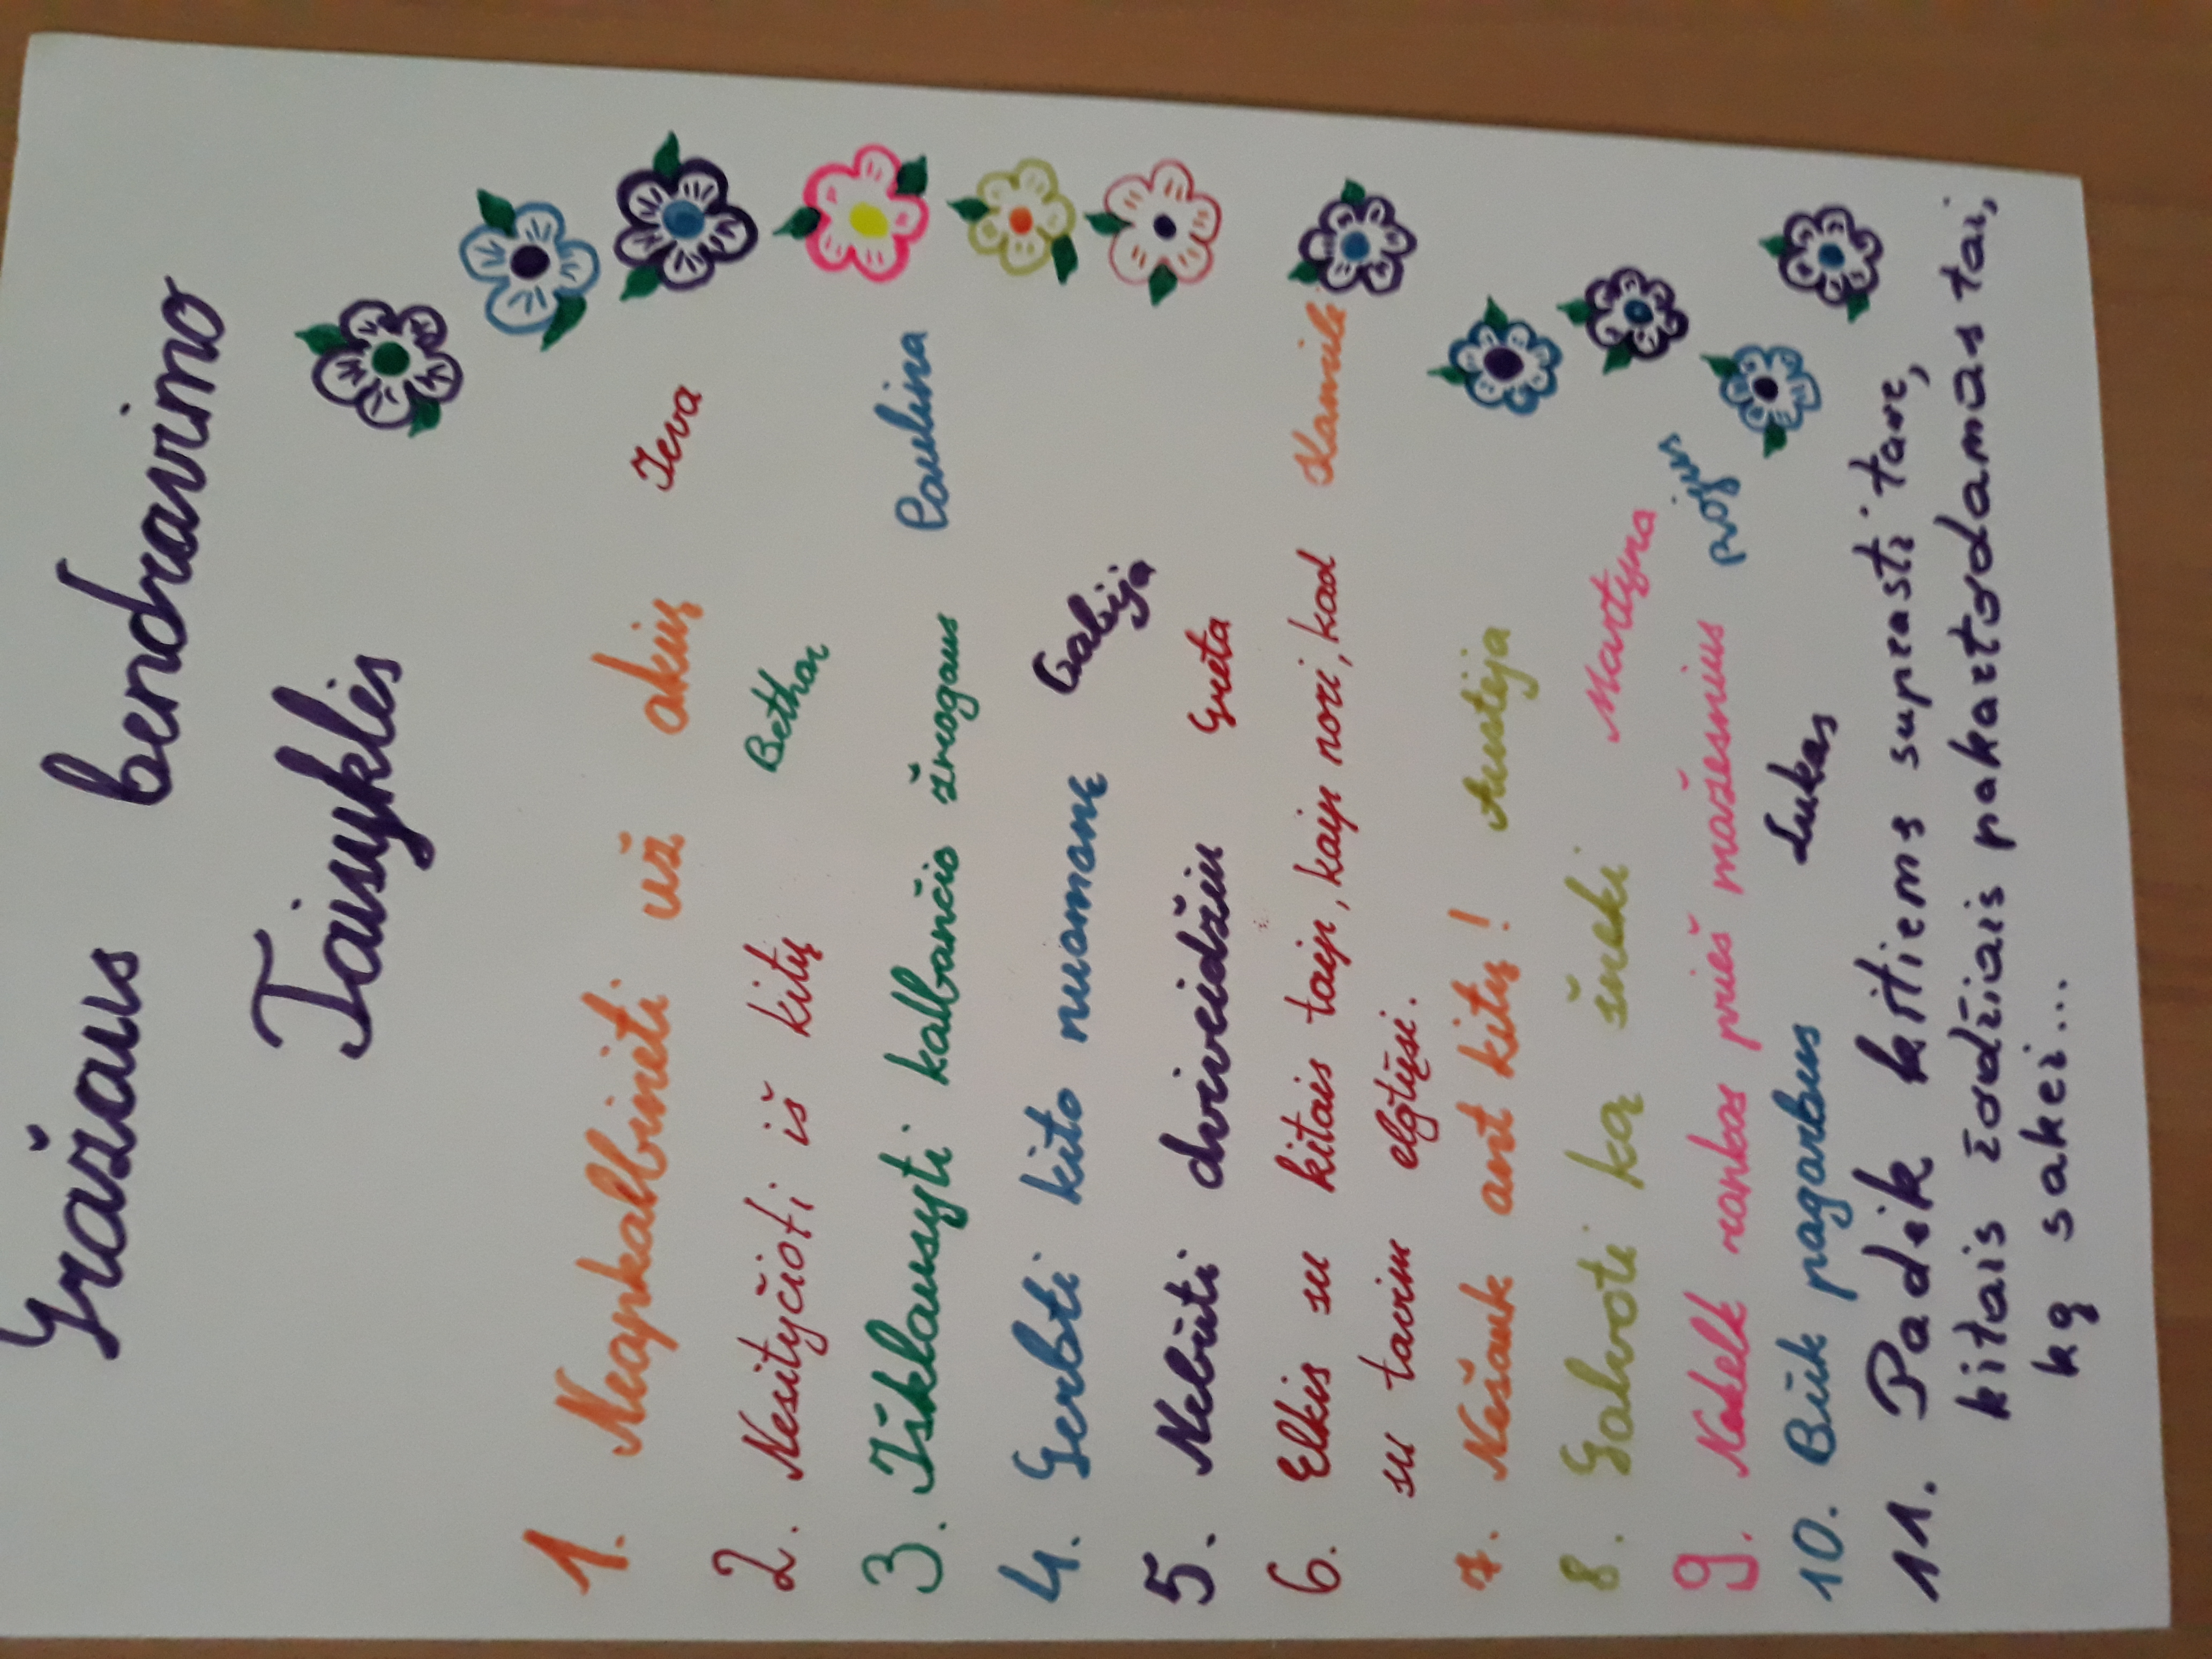 Gražaus bendravimo
Taisyklės
1. Neapkalbinėti už akių Ieva
2. Nesityčioti iš kitų
3. Išklausyti kalbančio žmogaus Paulina
4. Gerbti kito nuomonę Gabija
5. Nebūti dviveidžiu Greta
6. Elkis su kitais taip, kaip nori, kad Kamilė
su tavim elgtųsi.
7. Nešauk ant kitų! Austėja
8. Galvoti ką šneki Martyna
9. Nekelk rankos prieš mažesnius
10. Būk pagarbus Lukas
11. Padėk kitiems suprasti tave,
kitais žodžiais pakartodamas tai,
ką sakei...